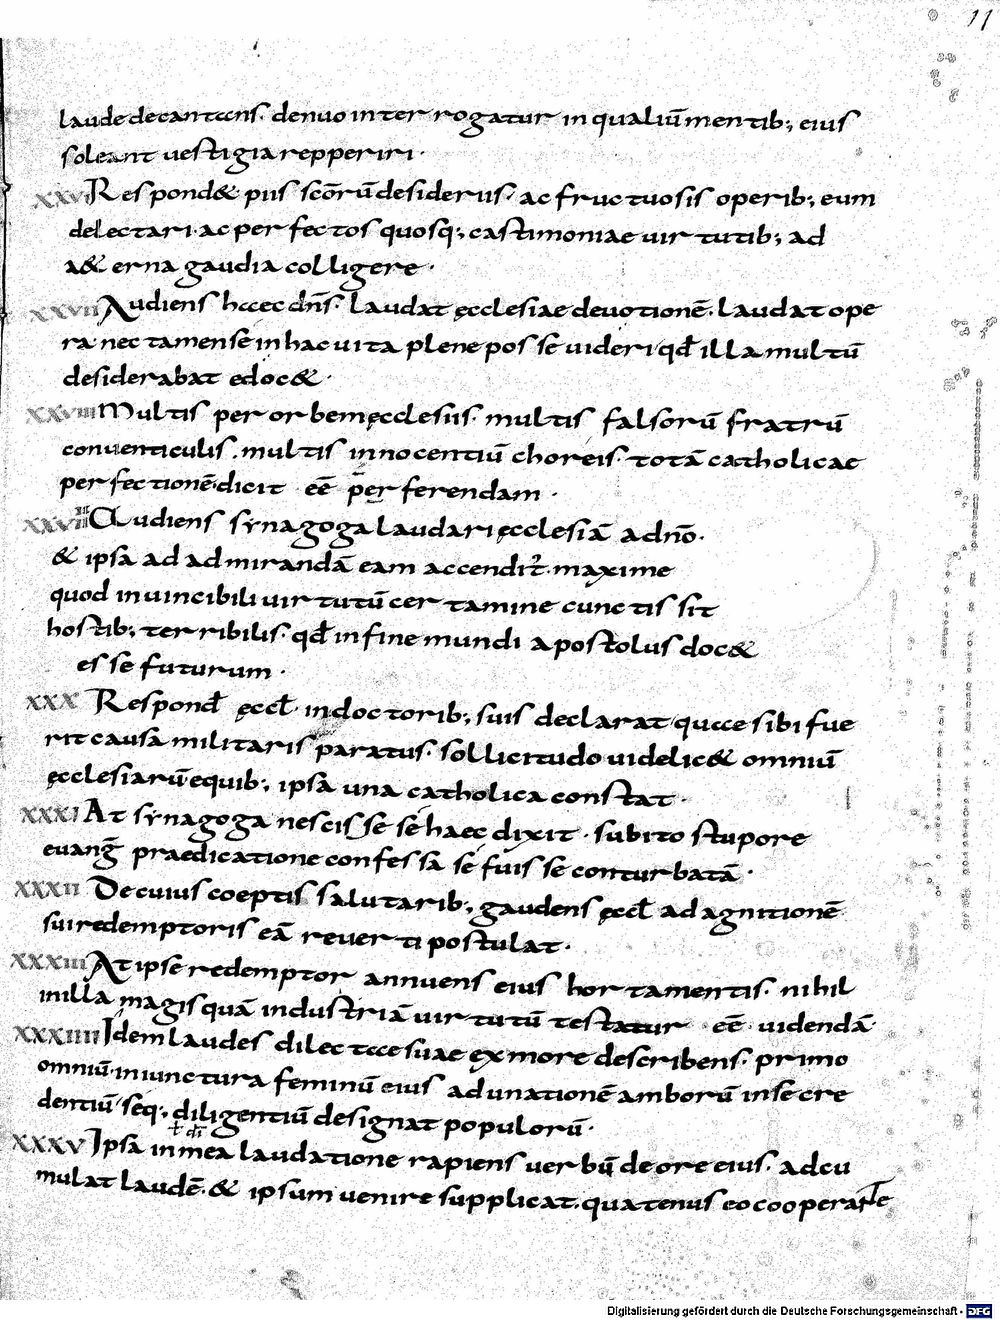 11
laude decantans. denuo interrogatur in qualiū mentib; eius
soleant uestigia repperiri.
XXVI Respond& piis scōrū desideriis. ac fructuosis operib; eum
delectari. ac perfectos quosq; castimoniae uirtutib; ad
a&erna gaudia colligere.
XXVII Audiens haec dn̄s. laudat ęcclesiae deuotionē. laudat ope
ra nec tamen se in hac uita plene posse uideri. qđ illa multū
desiderabat edoc&.
XXVIII Multis per orbem ęcclesiis. multis falsorū fratrū
conuenticulis. multis innocentiū choreis. totā catholicae
perfectionē dicit eē perferendam.
XXVIIII Audiens synagoga laudari ęcclesiā a dn̄o.
& ipsa ad admirandā eam accendit. maxime
quod inuincibili uirtutū certamine cunctis sit
hostib; terribilis. qđ in fine mundi apostolus doc&
esse futurum.
XXX Respond̄ ęccl̄ in doctorib; suis declarat quae sibi fue
rit causa militaris paratus. sollicitudo uidelic& omniū
ęcclesiarū equib; ipsa una catholica constat.
XXXI At synagoga nescisse se haec dixit. subito stupore
euanḡ praedicatione confessa se fuisse conturbatā.
XXXII De cuius coeptis salutarib; gaudens ęccl̄ ad agnitionē
sui redemptoris eā reuerti postulat.
XXXIII At ipse redemptor annuens eius hortamentis. nihil
in illa magis quā industriā uirtutū testatur eē uidendā.
XXXIIII Idem laudes dilectae suae ex more describens. primo
omniū. in iunctura feminū eius adunationē amborū in se cre
dentiū seq; diligentiū designat populorū.
XXXV Ipsa in mea laudatione rapiens uerbū de ore eius. adcu
mulat laudē. & ipsum uenire supplicat. quatenus eo cooperante
Digitalisierung gefördert durch die Deutsche Forschungsgemeinschaft - DFG